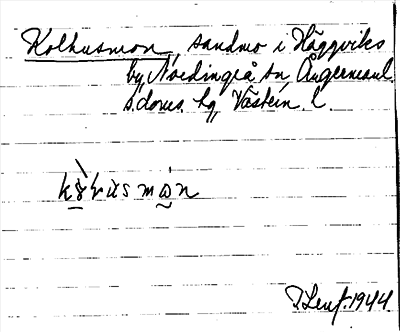 Kolhusmon, sandmo i Häggviks
by, Nordingrå sn, Ångermanl.
s. doms. hg, Västern. l.
kòḷhu̇smȯn
P. Lenf. 1944.